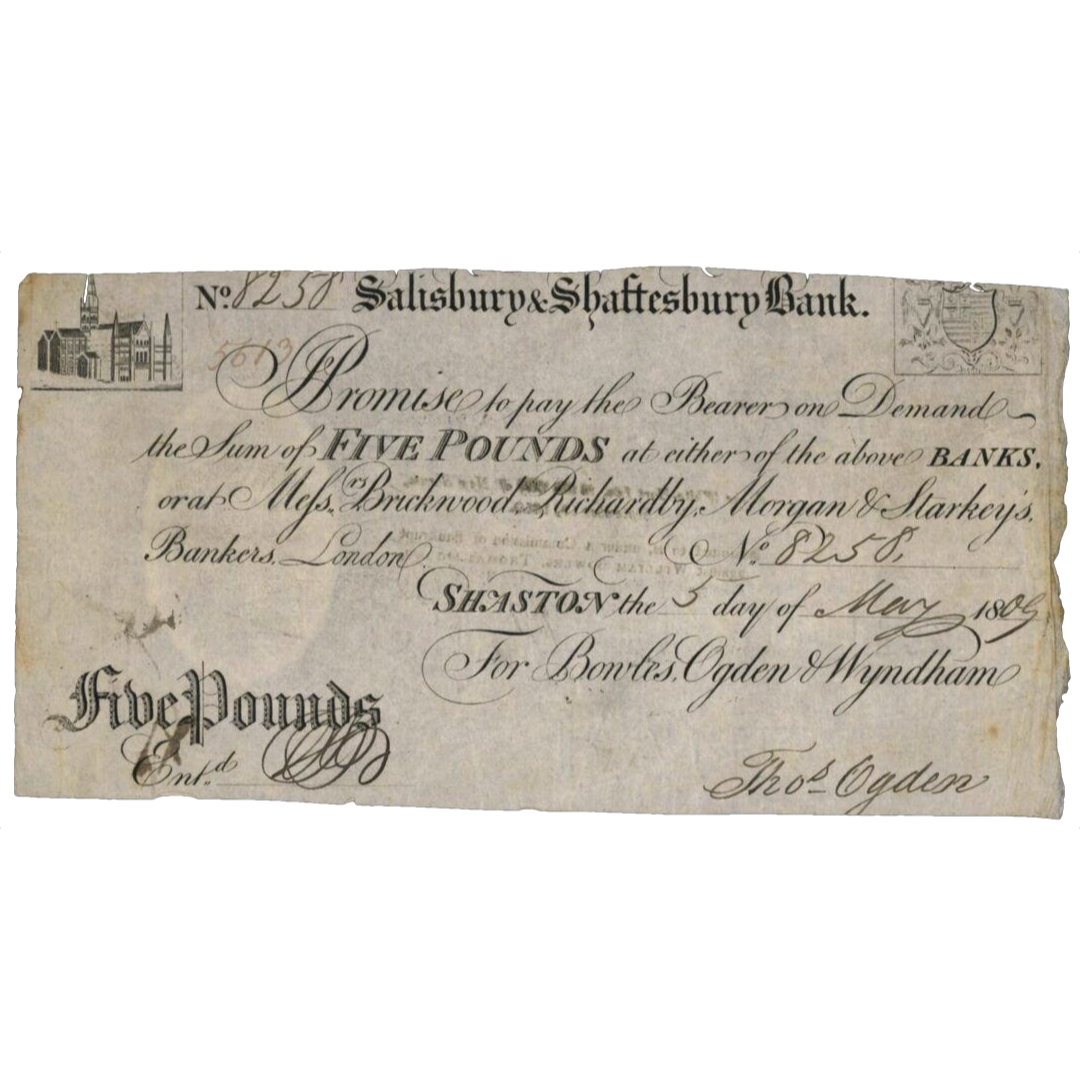 No. 8258 Salisbury & Shaftesbury Bank.
5613
I Promise to pay the Bearer on Demand
the Sum of FIVE POUNDS at either of the above BANKS,
or at Messrs. Brickwood, Richardby, Morgan & Starkey's,
Bankers, London. No. 8258,
SHASTON the 5 day of May 1809
For Bowles, Ogden & Wyndham
Five Pounds
Entd.
Thos Ogden